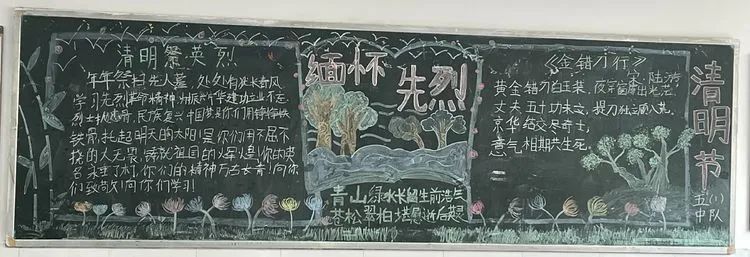 清明祭英烈
年年祭扫先人墓,处处有
学习先烈革命精神,为振兴中华建功立业不
烈士抛忠骨,民族复兴中国梦是你们用
铁骨,托起明天的太阳!是你们用不屈不
挠的大无畏,铸就祖国的辉煌!你的英
名永垂了村,你们的精神万古女青!向你
们致敬!向你们学习!
缅怀
先烈
青山绿水长留生前浩气
苍松翠柏堪慰逝后英灵
《金错刀行》
宋 陆游
黄金错刀白玉装,夜穿窗扉出光芒。
丈夫五十功未立,提刀独立顾八荒。
京华结交尽奇士,
意气相期共生死
清明节
五(1)
中队